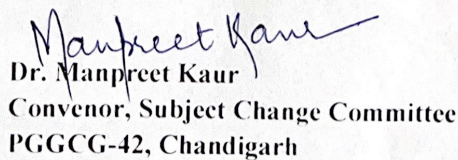 Manpreet Kaur
Dr. Manpreet Kaur
Convenor, Subject Change Committee
PGGCG-42, Chandigarh